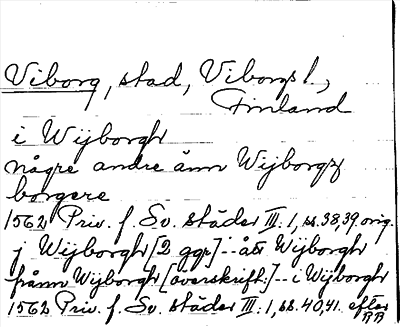 Viborg, stad, Viborgs l.,
Finland
i Wijborgh
någre andre änn Wijborgz
borgere
1562 Priv. f. Sv. städer III: 1, ss. 38, 39 orig.
j Wijborgh [2 ggr] -- åt Wijborgh
frånn Wijborgh [överskrift:] -- i Wijborgh
1562 Priv. f. Sv. städer III: 1, ss. 40, 41. efter
RR